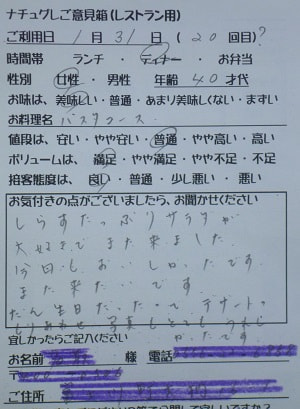 ナチュグしご意見箱(レストラン用)
ご利用日 1月31日(20回目)?
時間帯 ランチ・ディナー・お弁当
性別 女性・男性 年齢 40才代
お味は、美味しい・普通・あまり美味しくない・まずい
お料理名 パスタコース
値段は、安い・やや安い・普通・やや高い・高い
ボリュームは、満足・やや満足・やや不足・不足
接客態度は、良い・普通・少し悪い・悪い
お気付きの点がございましたら、お聞かせください
しらすたっぷりサラダが
大好きでまた来ました。
今回もおいしかったです。
また来た です。
たん生日だったので、デザートの
もりあわせ 写真もとてもうれし
かったです。
宜しかったらご記入ください
お名前 様 電話
〒
ご住所